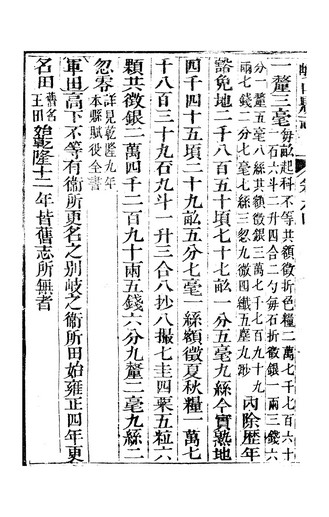 一釐三毫每畝起科不等共額徵折色糧二萬七千七百六十
六石六斗二升四合二勺每石折徵銀一兩三錢六
分一釐五毫八絲共額徵銀三萬七千七百九十九
兩七錢二分七毫七絲三忽九微四纎五塵九渺
內除歷年
豁免地二千八百五十頃七十七畝一分五毫九絲今實熟地
四千四十五頃二十九畝五分七毫 絲額徵夏秋糧一萬七
千八百三十九石九斗一升三合八抄八撮七圭四粟五粒六
顆共徵銀二萬四千二百九十兩五錢六分九釐二毫九絲二
忽零詳見乾隆九年
本縣賦役全書
軍田高下不等有衞所更名之別岐之衞所田始雍正四年更
名田舊名
王田始乾隆十二年皆舊志所無者